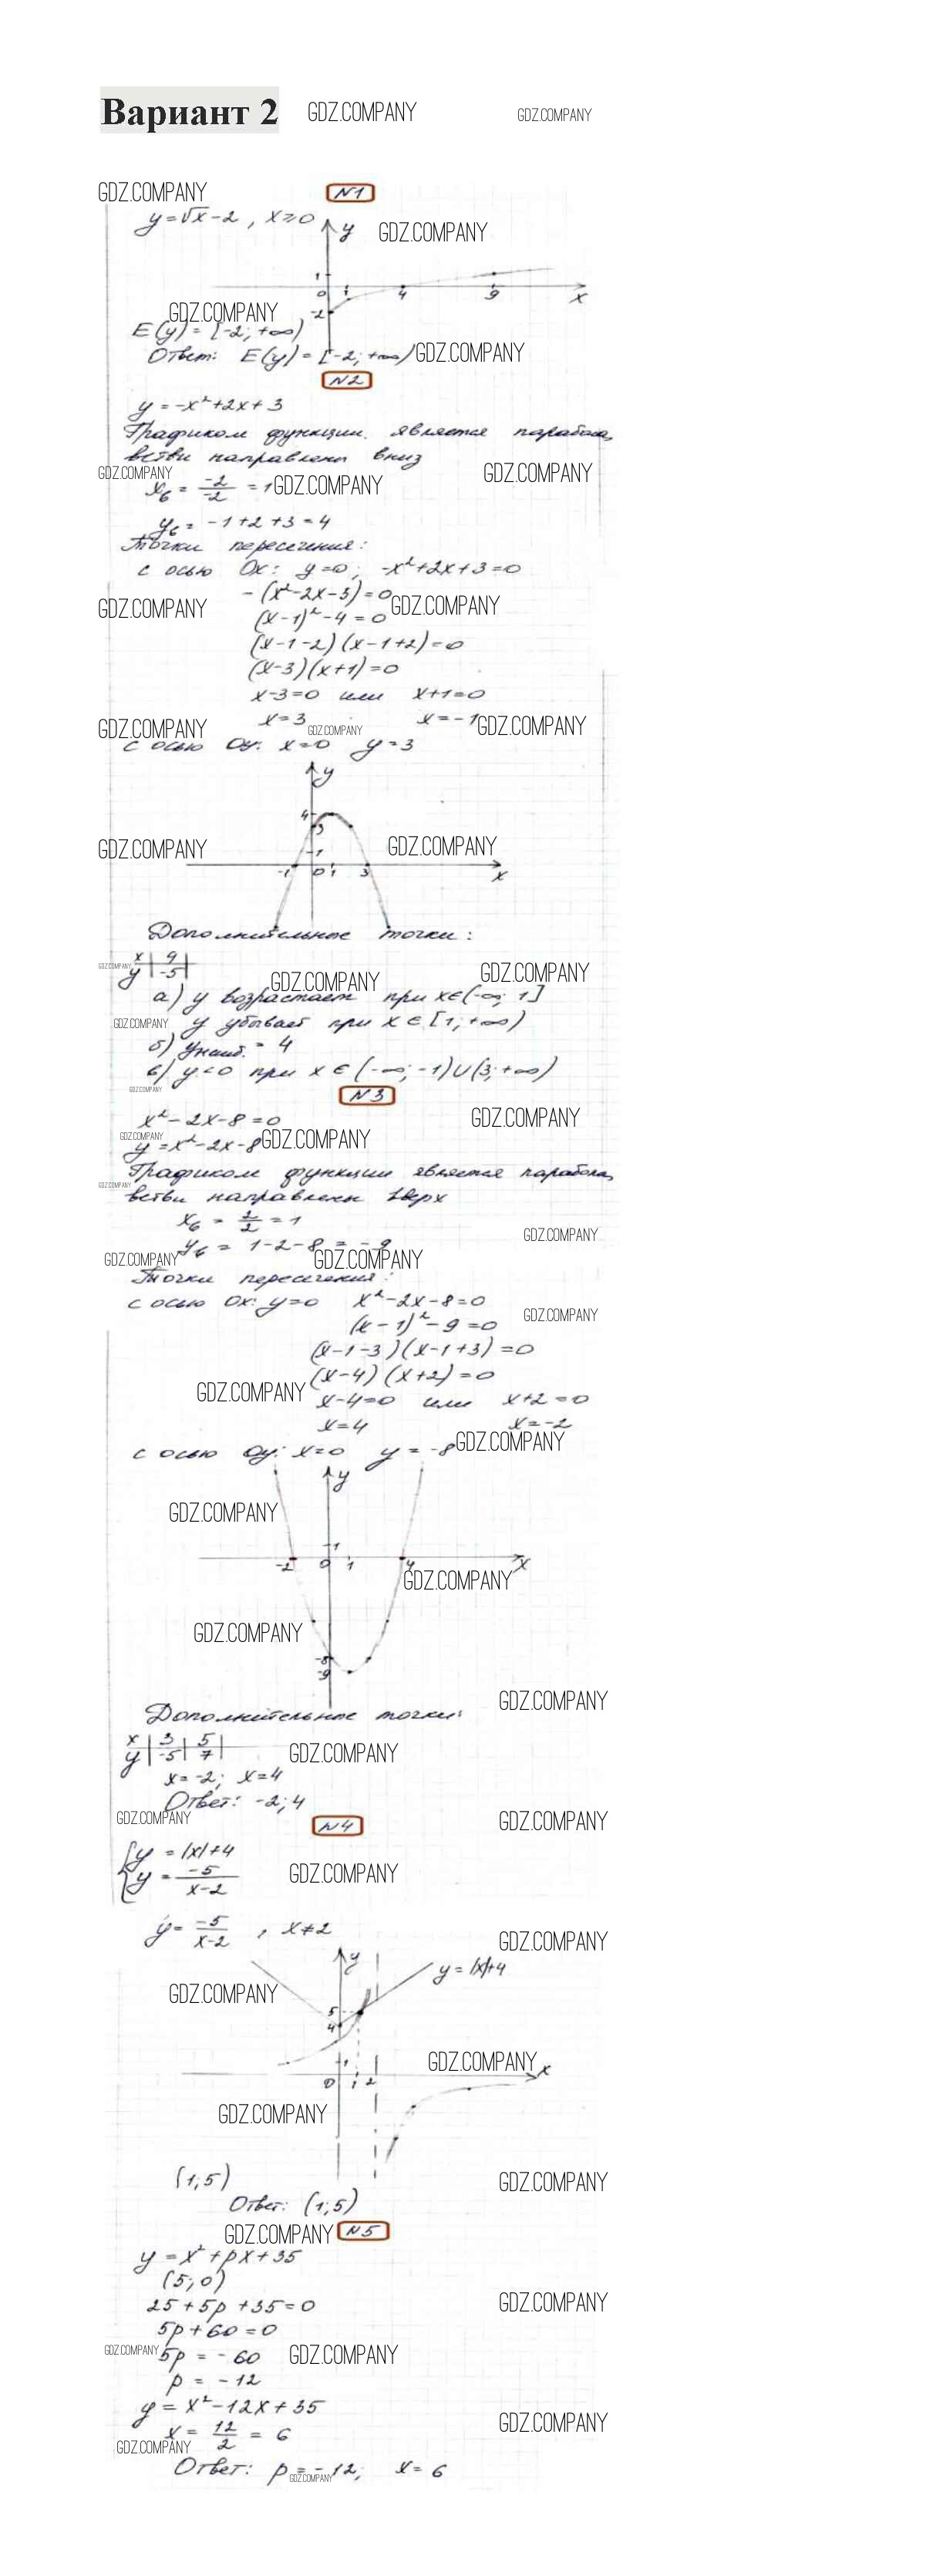 Вариант 2 GDZ.COMPANY GDZ.COMPANY
GDZ.COMPANY N1
y=√x-2 , x≥0 y GDZ.COMPANY
1
0 1 4 9 x
GDZ.COMPANY -2
E(y)=[-2; +∞)
Ответ: E(y)=[-2; +∞) GDZ.COMPANY
N2
y=-x²+2x+3
Графиком функции является парабола,
ветви направлены вниз
GDZ.COMPANY GDZ.COMPANY
x₆ = -2/-2 = 1 GDZ.COMPANY
y₆ = -1+2+3=4
Точки пересечения:
с осью Ox: y=0; -x²+2x+3=0
-(x²-2x-3)=0
GDZ.COMPANY (x-1)²-4=0 GDZ.COMPANY
(x-1-2)(x-1+2)=0
(x-3)(x+1)=0
x-3=0 или x+1=0
GDZ.COMPANY x=3 GDZ.COMPANY x=-1 GDZ.COMPANY
с осью Oy: x=0 y=3
y
4
3
GDZ.COMPANY 1 GDZ.COMPANY
-1 0 1 3 x
Дополнительные точки:
GDZ.COMPANY x | 9
y | -5 GDZ.COMPANY GDZ.COMPANY
а) y возрастает при x∈(-∞; 1]
GDZ.COMPANY y убывает при x∈[1; +∞)
б) yнаиб. = 4
в) y<0 при x∈(-∞; -1)∪(3; +∞)
GDZ.COMPANY N3
x²-2x-8=0 GDZ.COMPANY
GDZ.COMPANY
y=x²-2x-8 GDZ.COMPANY
Графиком функции является парабола,
GDZ.COMPANY
ветви направлены вверх
x₆ = 2/2 = 1
y₆ = 1-2-8=-9 GDZ.COMPANY
GDZ.COMPANY GDZ.COMPANY
Точки пересечения:
с осью Ox: y=0 x²-2x-8=0
(x-1)²-9=0 GDZ.COMPANY
(x-1-3)(x-1+3)=0
(x-4)(x+2)=0
GDZ.COMPANY x-4=0 или x+2=0
x=4 x=-2
с осью Oy: x=0 y=-8 GDZ.COMPANY
y
GDZ.COMPANY
1
-2 0 1 4 x
GDZ.COMPANY
GDZ.COMPANY
-8
-9
GDZ.COMPANY
Дополнительные точки:
x | 3 | 5 |
y | -5 | 7 | GDZ.COMPANY
x=-2; x=4
Ответ: -2; 4
GDZ.COMPANY N4 GDZ.COMPANY
{y=|x|+4
y= -5/x-2 GDZ.COMPANY
y= -5/x-2 , x≠2 GDZ.COMPANY
y
GDZ.COMPANY y=|x|+4
5
4
1 GDZ.COMPANY
0 1 2 x
GDZ.COMPANY
(1;5) GDZ.COMPANY
Ответ: (1;5)
GDZ.COMPANY N5
y=x²+px+35
(5;0)
25+5p+35=0 GDZ.COMPANY
5p+60=0
GDZ.COMPANY 5p=-60 GDZ.COMPANY
p=-12
y=x²-12x+35
x= 12/2 = 6 GDZ.COMPANY
GDZ.COMPANY
Ответ: p=-12; x=6
GDZ.COMPANY